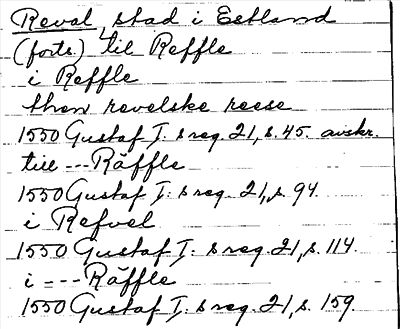 Reval, stad i Estland
(forts.) til Reffle
i Reffle
then revelske reese
1550 Gustaf I:s reg. 21, s. 45. avskr.
till --- Räffle
1550 Gustaf I:s reg. 21, s. 94.
i Refvel
1550 Gustaf I:s reg. 21, s. 114.
i --- Räffle
1550 Gustaf I:s reg. 21, s. 159.